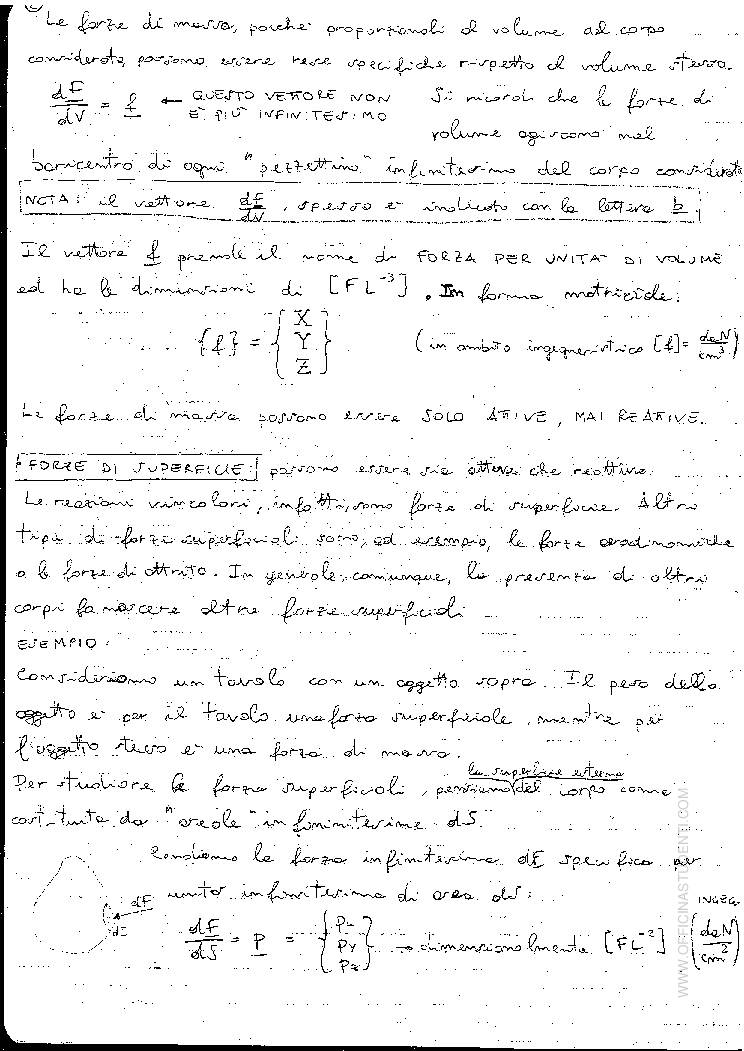 Le forze di massa, poiché proporzionali al volume del corpo
considerato, possono essere rese specifiche rispetto al volume stesso.
dF/dV = f ← QUESTO VETTORE NON È PIÙ INFINITESIMO
Si ricordi che le forze di
volume agiscono nel
baricentro di ogni "pezzettino" infinitesimo del corpo considerato
NOTA: il vettore dF/dV, spesso è indicato con la lettera b.
Il vettore f prende il nome di FORZA PER UNITA' DI VOLUME
ed ha le dimensioni di [FL⁻³]. In forma matriciale:
{f} = {X Y Z} (in ambito ingegneristico [f] = daN/cm³)
Le forze di massa possono essere SOLO ATTIVE, MAI REATTIVE.
FORZE DI SUPERFICIE: possono essere sia attive che reattive.
Le reazioni vincolari, infatti, sono forze di superficie. Altri
tipi di forze superficiali sono, ad esempio, le forze aerodinamiche
o le forze di attrito. In generale, comunque, la presenza di altri
corpi fa nascere altre forze superficiali
ESEMPIO:
Consideriamo un tavolo con un oggetto sopra. Il peso dello
oggetto è per il tavolo una forza superficiale, mentre per
l'oggetto stesso è una forza di massa.
Per studiare le forze superficiali, pensiamo la superficie esterna del corpo come
costituita da "areole" infinitesime dS.
Rendiamo la forza infinitesima dF specifica per
unità infinitesima di area dS:
dF
dS
dF/dS = p = {Px Py Pz} → dimensionalmente [FL⁻²] (daN/cm²)
INGEG.
WWW.OFFICINASTUDENTI.COM